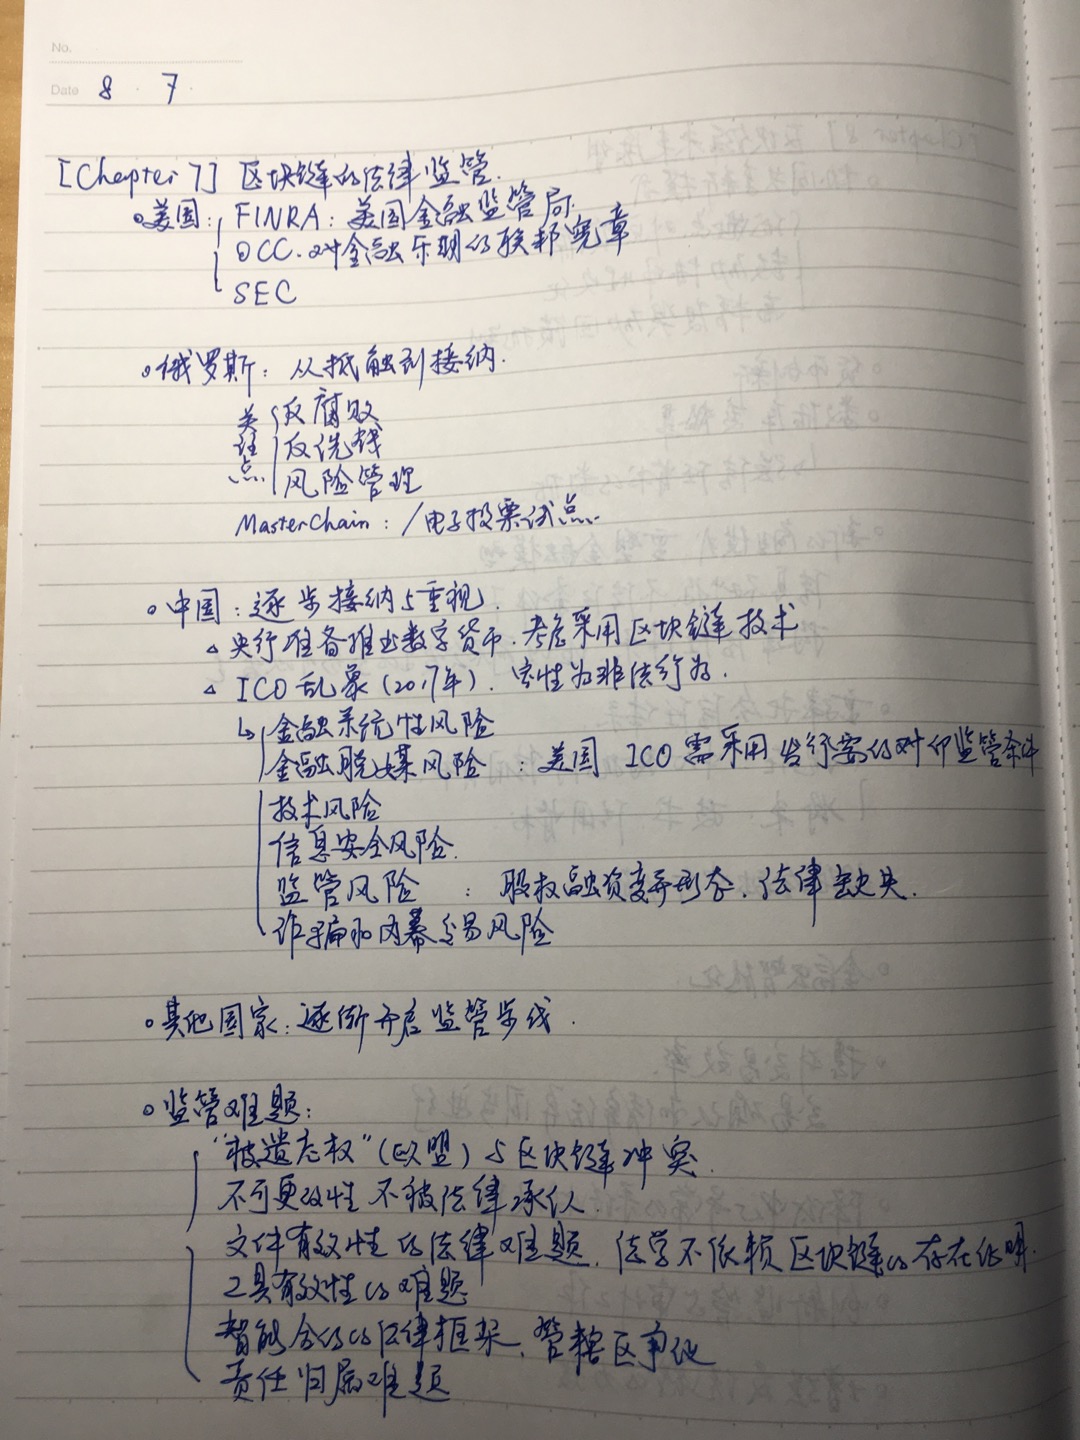 No.
Date 8 · 7 ·
[Chapter 7] 区块链的法律监管.
美国: FINRA: 美国金融监管局.
OCC. 对金融 的联邦宪章
SEC
俄罗斯: 从抵触到接纳.
关注点. 反腐败
反洗钱
风险管理
MasterChain: / 电子投票试点.
中国: 逐步接纳与重视.
央行准备推出数字货币. 考虑采用区块链技术
ICO乱象(2017年). 定性为非法行为.
金融系统性风险
金融脱媒风险 : 美国 ICO 需采用 发行 的对 监管条件
技术风险
信息安全风险.
监管风险 : 股权融资变异形态. 法律缺失.
诈骗和内幕交易风险
其他国家: 逐渐开启监管步线.
监管难题:
"被遗忘权"(欧盟)与区块链冲突.
不可更改性不被法律承认.
文件有效性的法律难题. 法学不依赖区块链的存在证明.
工具有效性的难题
智能合约的法律框架. 管辖区争议
责任归属难题